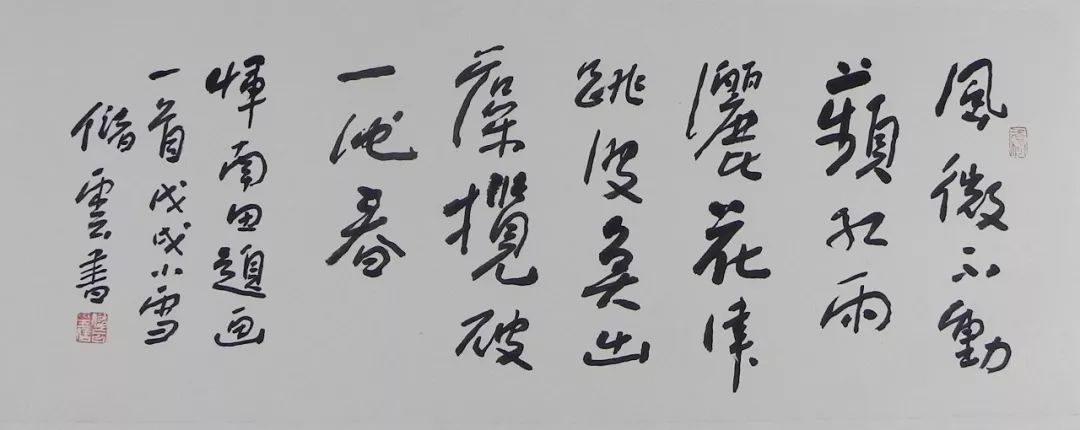 風微不動
蘋紅雨
灑花津
跳波魚出
藻攪破
一池春
惲南田題画
一首戊戌小雪
偕雲書